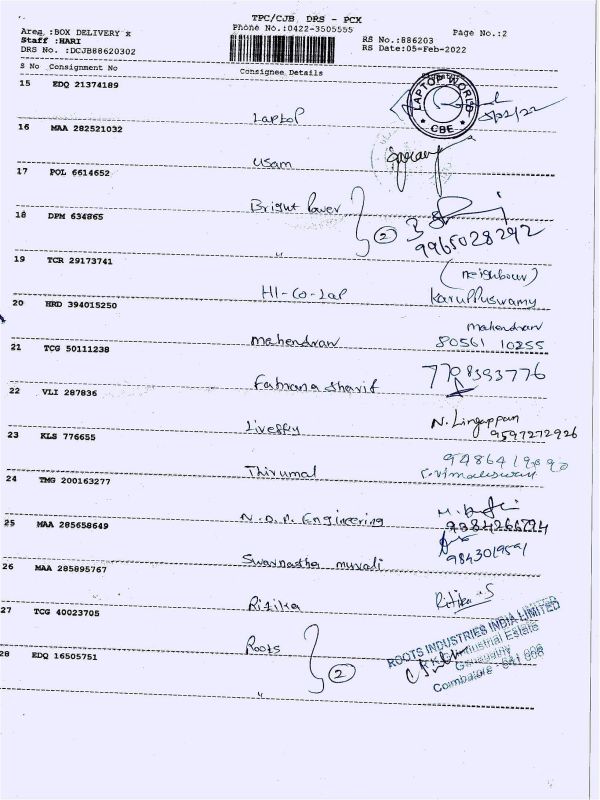 TPC/CJB DRS - PCX
Area :BOX DELIVERY x Phone No.:0422-3505555 Page No.:2
Staff :HARI RS No.:886203
DRS No. :DCJB88620302 RS Date:05-Feb-2022
S No Consignment No Consignee Details
15 EDQ 21374189
Laptop LAPTOP WORLD CBE 5/02/22
16 MAA 282521032
Usam
17 POL 6614652
Bright Power
18 DPM 634865
" 2 9965028292
19 TCR 29173741
HI-Co-Lap (neighbour) Karuppuswamy
20 HRD 394015250
mahendran mahendran 80561 10255
21 TCG 50111238
Fahmana Sharif
22 VLI 287836
Liveffy N. Lingappan 9597272926
23 KLS 776655
Thirumal
24 TMG 200163277
N.D.P. Engineering
25 MAA 285658649
Swarnastha murali
26 MAA 285895767
Ritika Ritika.S
27 TCG 40023705
Roots ROOTS INDUSTRIES INDIA LIMITED
28 EDQ 16505751
Industrial Estate
Coimbatore
" 2